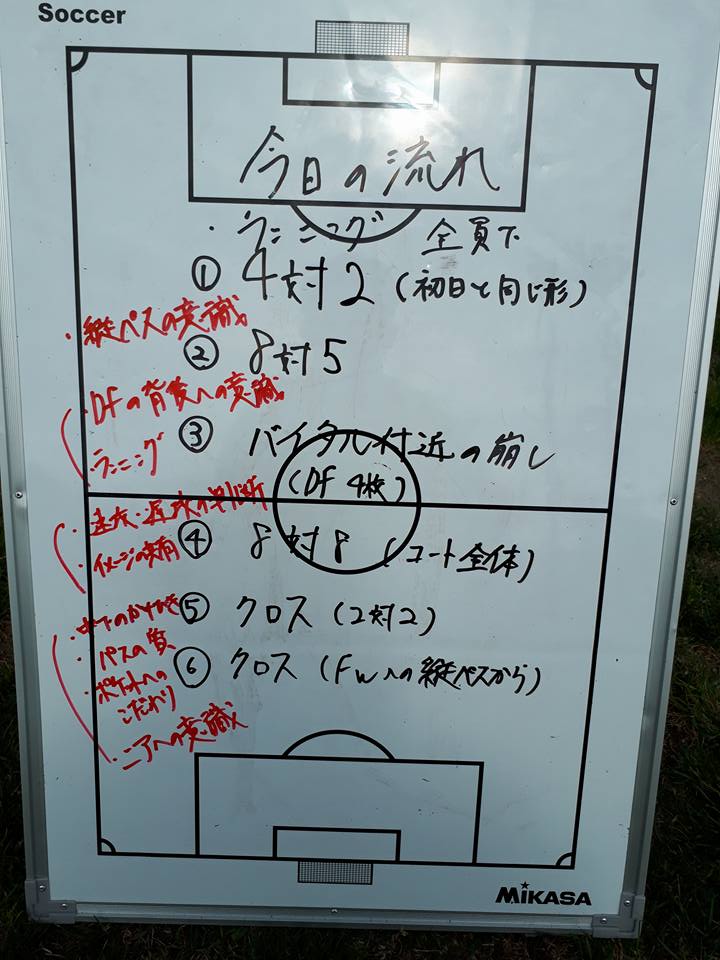 Soccer
今日の流れ
・ランニング 全員下
① 4対2 (初日と同じ形)
・縦パスの意識
② 8対5
・DFの背後への意識
③ バイタル付近の崩し
・ランニング
(DF 4枚)
・速攻・遅攻の判断
④ 8対8 (コート全体)
・イメージの共有
⑤ クロス (2対2)
・パスの質
⑥ クロス (FWへの縦パスから)
・ポケットへの
こだわり
・ニアへの意識
MIKASA